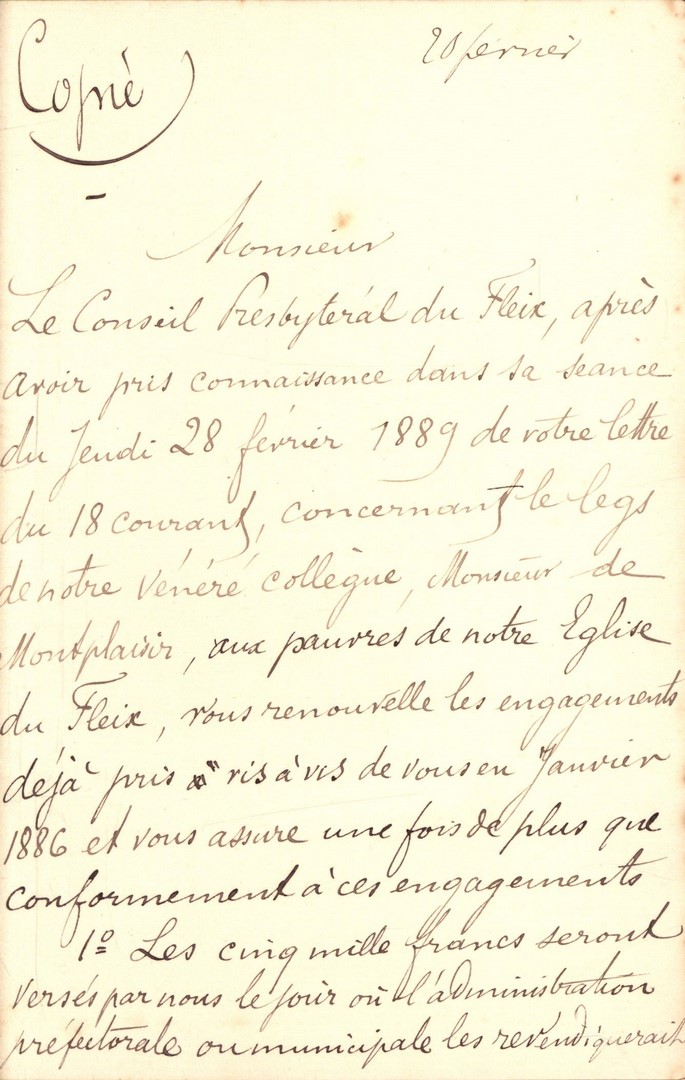 20 février
Copié
Monsieur
Le Conseil Presbytéral du Fleix, après
avoir pris connaissance dans sa seance
du Jeudi 28 février 1889 de votre lettre
du 18 courant, concernant le legs
de notre vénéré collègue, Monsieur de
Montplaisir, aux pauvres de notre Eglise
du Fleix, vous renouvelle les engagements
déjà pris vis à vis de vous en Janvier
1886 et vous assure une fois de plus que
conformement à ces engagements
1º Les cinq mille francs seront
versés par nous le jour où l'administration
préfectorale ou municipale les revendiquerait